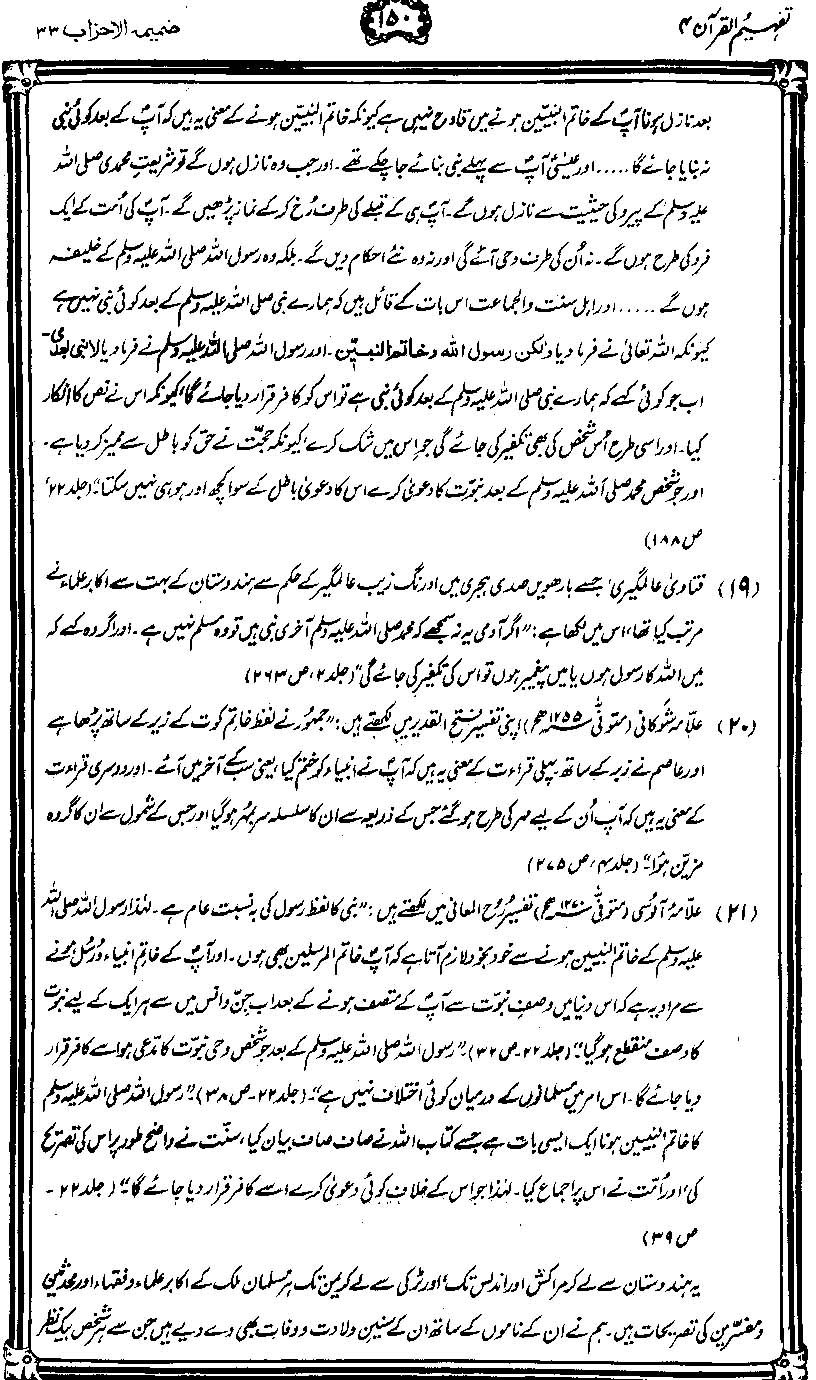 تفہیم القرآن ۴
۱۵۰
ضمیمہ الاحزاب ۳۳
بعد نازل ہونا آپؐ کے خاتم النبیّین ہونے میں قادح نہیں ہے کیونکہ خاتم النبیّین ہونے کے معنی یہ ہیں کہ آپؐ کے بعد کوئی نبی
نہ بنایا جائے گا ..... اور عیسیٰؑ آپؐ سے پہلے نبی بنائے جا چکے تھے۔ اور جب وہ نازل ہوں گے تو شریعتِ محمدی صلی اللہ
علیہ وسلم کے پیرو کی حیثیت سے نازل ہوں گے۔ آپؐ ہی کے قبلے کی طرف رُخ کر کے نماز پڑھیں گے۔ آپؐ کی اُمت کے ایک
فرد کی طرح ہوں گے۔ نہ اُن کی طرف وحی آئے گی اور نہ وہ نئے احکام دیں گے۔ بلکہ وہ رسول اللہ صلی اللہ علیہ وسلم کے خلیفہ
ہوں گے ..... اور اہل سنت والجماعت اس بات کے قائل ہیں کہ ہمارے نبی صلی اللہ علیہ وسلم کے بعد کوئی نبی نہیں ہے
کیونکہ اللہ تعالیٰ نے فرما دیا ولکن رسول اللہ وخاتم النبیّن۔ اور رسول اللہ صلی اللہ علیہ وسلم نے فرما دیا لا نبی بعدی۔
اب جو کوئی کہے کہ ہمارے نبی صلی اللہ علیہ وسلم کے بعد کوئی نبی ہے تو اس کو کافر قرار دیا جائے گا، کیونکہ اس نے نص کا انکار
کیا۔ اور اسی طرح اُس شخص کی بھی تکفیر کی جائے گی جو اس میں شک کرے، کیونکہ حجّت نے حق کو باطل سے ممیز کر دیا ہے۔
اور جو شخص محمد صلی اللہ علیہ وسلم کے بعد نبوّت کا دعویٰ کرے اس کا دعویٰ باطل کے سوا کچھ اور ہو ہی نہیں سکتا“ (جلد ۲۲،
ص ۱۸۸)
(۱۹) فتاویٰ عالمگیری، جسے بارھویں صدی ہجری میں اورنگ زیب عالمگیر کے حکم سے ہندوستان کے بہت سے اکابر علماء نے
مرتب کیا تھا، اس میں لکھا ہے: ”اگر آدمی یہ نہ سمجھے کہ محمد صلی اللہ علیہ وسلم آخری نبی ہیں تو وہ مسلم نہیں ہے۔ اور اگر وہ کہے کہ
میں اللہ کا رسول ہوں یا میں پیغمبر ہوں تو اس کی تکفیر کی جائے گی“ (جلد ۲، ص ۲۶۳)
(۲۰) علّامہ شوکانی (متوفّٰی ۱۲۵۵ھ) اپنی تفسیر فتح القدیر میں لکھتے ہیں: ”جمہور نے لفظ خاتم کو ت کے زیر کے ساتھ پڑھا ہے
اور عاصم نے زبر کے ساتھ۔ پہلی قراءت کے معنی یہ ہیں کہ آپؐ نے انبیاء کو ختم کیا، یعنی سب کے آخر میں آئے۔ اور دوسری قراءت
کے معنی یہ ہیں کہ آپؐ اُن کے لیے مہر کی طرح ہو گئے جس کے ذریعہ سے ان کا سلسلہ سربمہر ہو گیا اور جس کے شمول سے ان کا گروہ
مزیّن ہُوا“ (جلد ۴، ص ۲۷۵)
(۲۱) علّامہ آلوسی (متوفّٰی ۱۲۷۰ھ) تفسیر رُوح المعانی میں لکھتے ہیں: ”نبی کا لفظ رسول کی بہ نسبت عام ہے۔ لہٰذا رسول اللہ صلی اللہ
علیہ وسلم کے خاتم النبیین ہونے سے خود بخود لازم آتا ہے کہ آپؐ خاتم المرسلین بھی ہوں۔ اور آپؐ کے خاتمِ انبیاء و رُسل ہونے
سے مراد یہ ہے کہ اس دنیا میں وصفِ نبوّت سے آپؐ کے متصف ہونے کے بعد اب جِن و انس میں سے ہر ایک کے لیے نبوّت
کا وصف منقطع ہو گیا“ (جلد ۲۲۔ ص ۳۲) ”رسول اللہ صلی اللہ علیہ وسلم کے بعد جو شخص وحیِ نبوّت کا مدّعی ہو اسے کافر قرار
دیا جائے گا۔ اس امر میں مسلمانوں کے درمیان کوئی اختلاف نہیں ہے“۔ (جلد ۲۲۔ ص ۳۸) ”رسول اللہ صلی اللہ علیہ وسلم
کا خاتم النبیین ہونا ایک ایسی بات ہے جسے کتاب اللہ نے صاف صاف بیان کیا، سنّت نے واضح طور پر اس کی تصریح
کی، اور اُمّت نے اس پر اجماع کیا۔ لہٰذا جو اس کے خلاف کوئی دعویٰ کرے اسے کافر قرار دیا جائے گا“ (جلد ۲۲۔
ص ۳۹)
یہ ہندوستان سے لے کر مراکش اور اندلس تک، اور ٹرکی سے لے کر یمن تک ہر مسلمان ملک کے اکابر علماء و فقہاء اور محدثین
و مفسّرین کی تصریحات ہیں۔ ہم نے ان کے ناموں کے ساتھ ان کے سنینِ ولادت و وفات بھی دے دیے ہیں جن سے ہر شخص بیک نظر